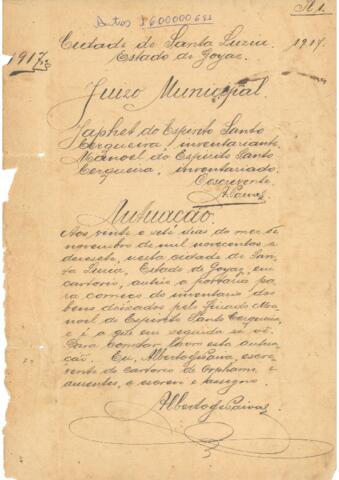 Autos
Fl 1.
Cidade de Santa Luzia 1917.
1917
Estado de Goyaz.
Juizo Municipal.
Japhet do Espirito Santo
Cerqueira, inventariante.
Manoel do Espirito Santo
Cerqueira, inventariado.
O escrevente
APaiva
Autuação.
Aos vinte e sete dias do mez de
novembro de mil novecentos e
dezesete, nesta cidade de San-
ta Luzia, Estado de Goyaz, em
cartorio, autúo a portaria pa-
ra começo do inventario dos
bens deixados pelo finado Ma-
noel do Espirito Santo Cerqueira
e é a que em seguida se vê.
Para constar, lavro esta autua-
ção. Eu, Alberto de Paiva, escre-
vente do cartorio de Orpham, e
ausentes, o escrevi e assigno.
Alberto de Paiva.